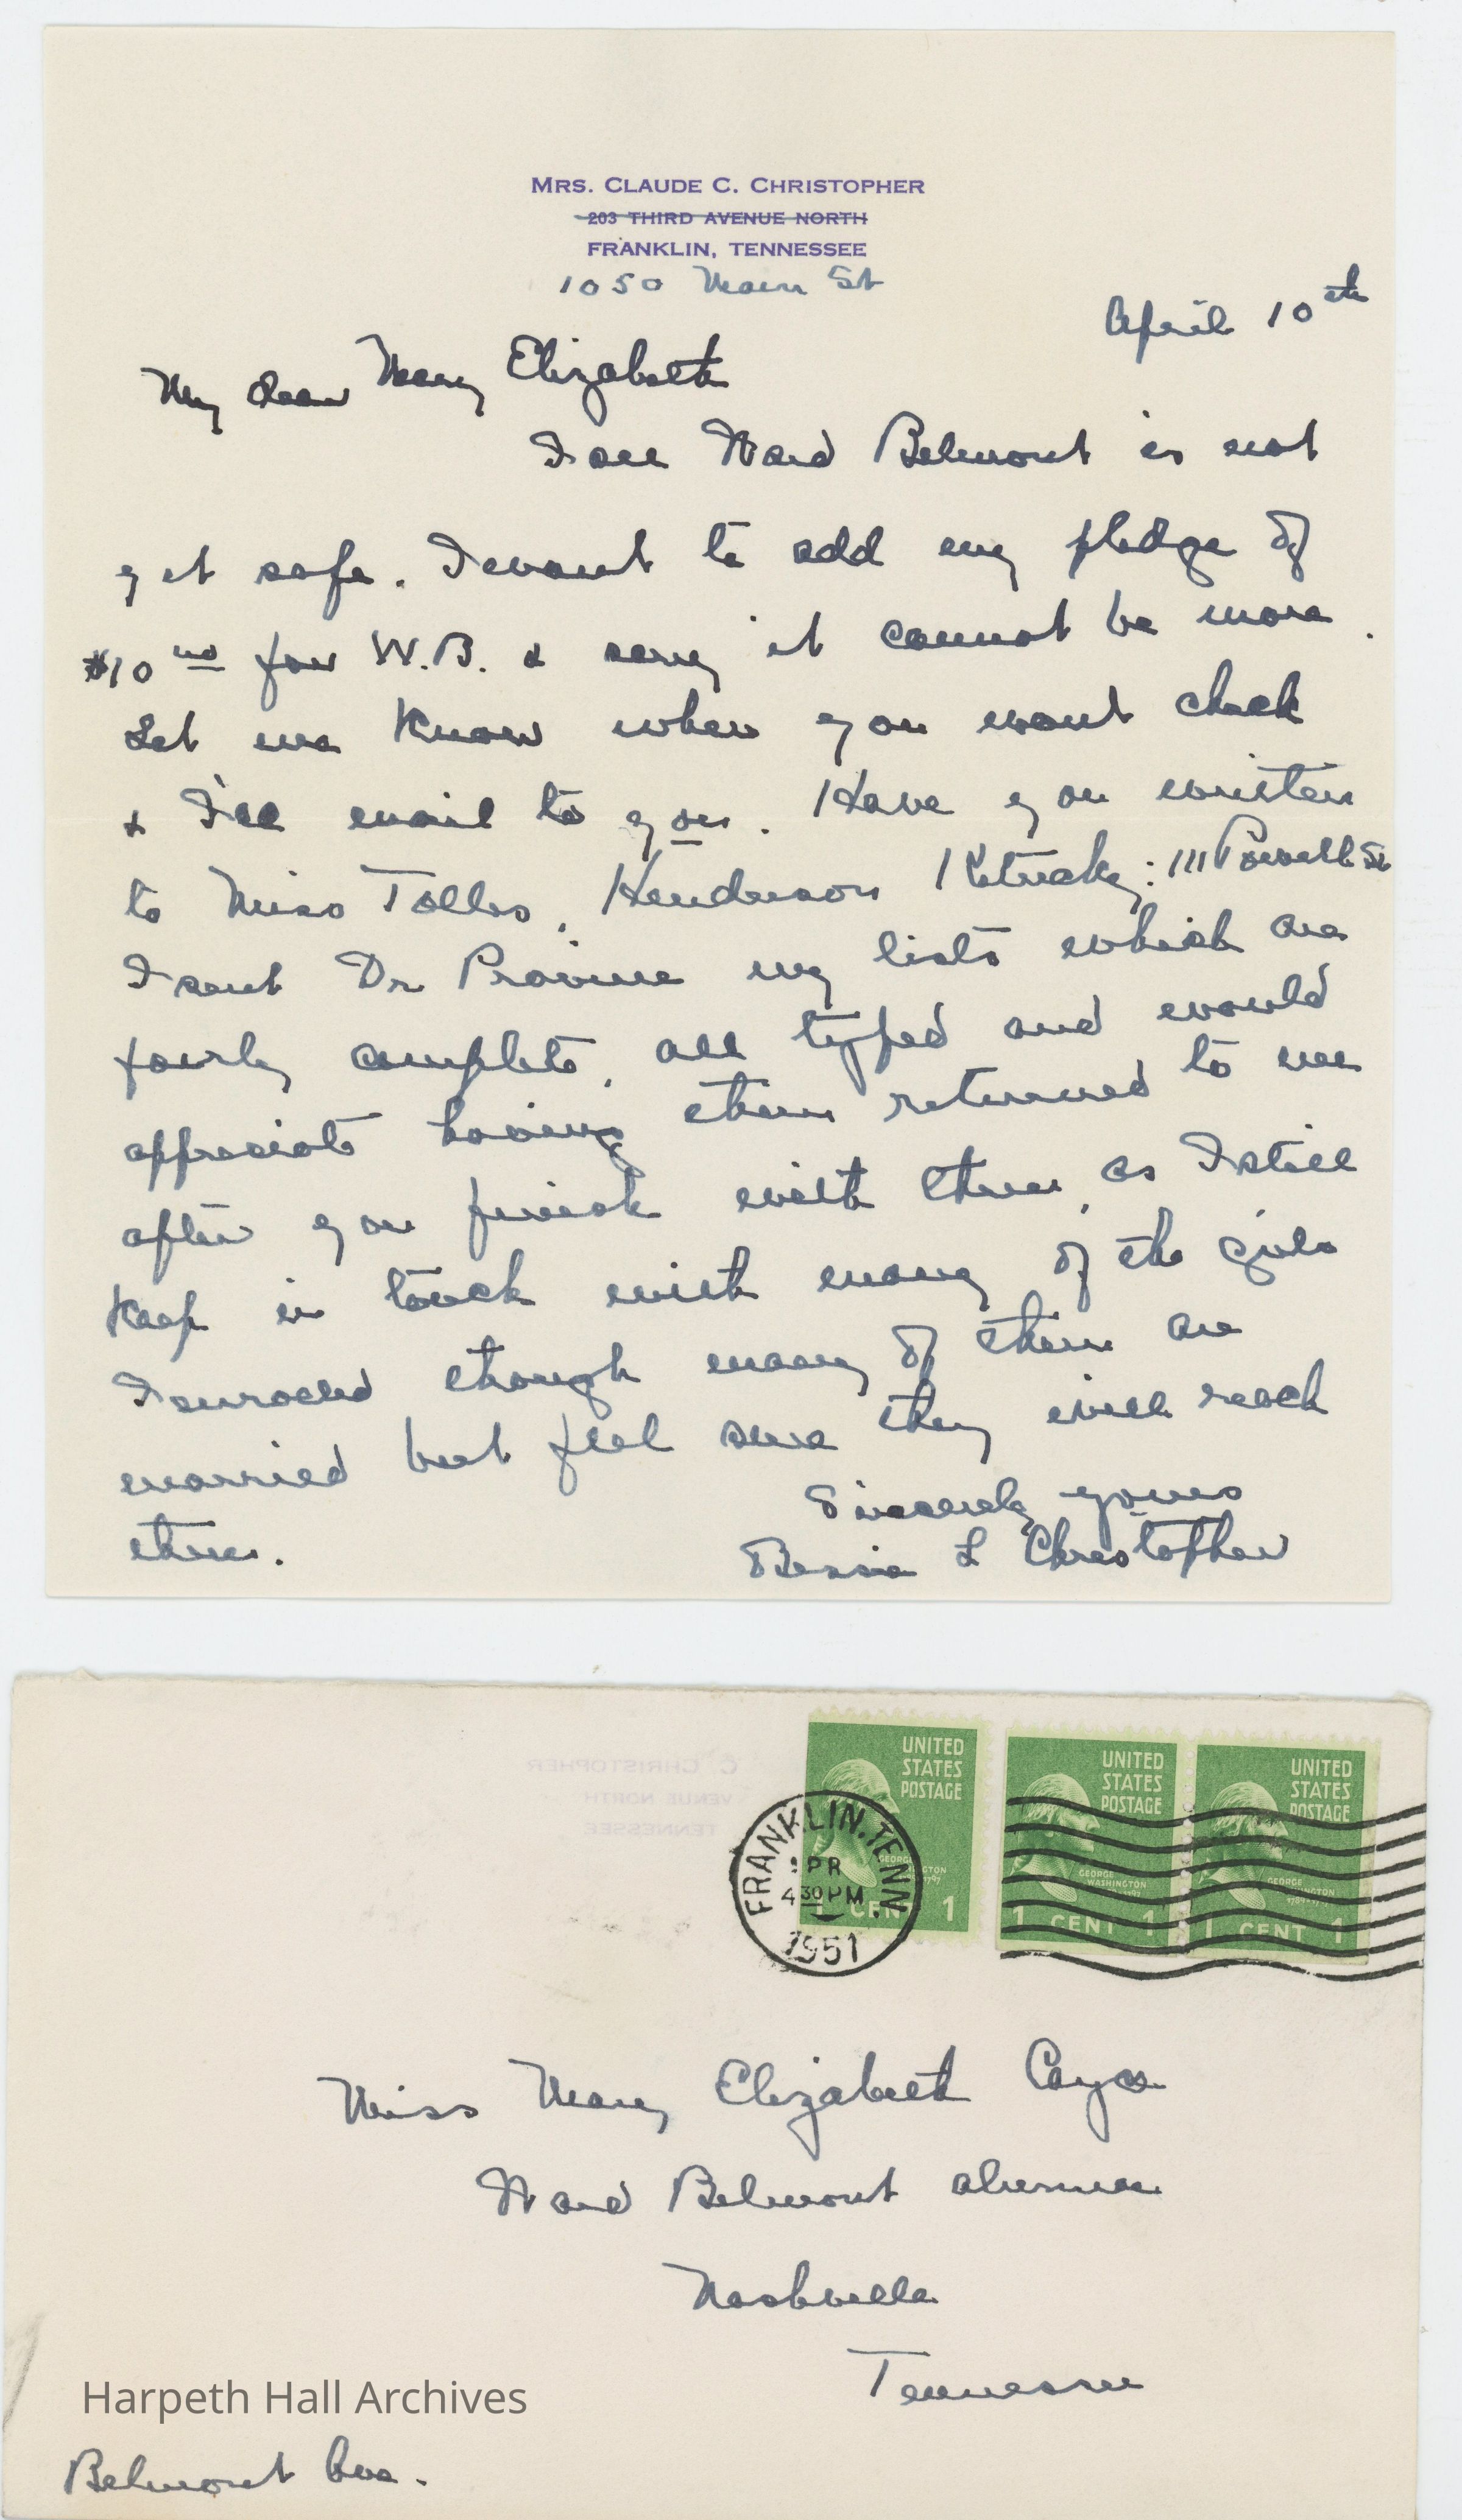 MRS. CLAUDE C. CHRISTOPHER
203 THIRD AVENUE NORTH
FRANKLIN, TENNESSEE
1050 Main St
April 10th
My dear Mary Elizabeth
I see Ward Belmont is not
yet safe. I want to add my pledge of
$10 no for W.B. & sorry it cannot be more.
Let me know when you want check
& I'll mail to you. Have you written
to Miss Tolles, Henderson Ktucky: 111 Powell St
I sent Dr Provine my lists which are
fairly complete, all typed and would
appreciate having them returned to me
after you finish with them, as I still
keep in touch with many of the girls
I enrolled though many of them are
married but feel sure they will reach
them.
Sincerely yours
Bessie L Christopher
C. CHRISTOPHER
VENUE NORTH
TENNESSEE
UNITED STATES POSTAGE
GEORGE
1 CENT 1
UNITED STATES POSTAGE
GEORGE WASHINGTON
1 CENT 1
UNITED STATES POSTAGE
GEORGE
1 CENT 1
FRANKLIN, TENN.
APR
4 30 PM
1951
Miss Mary Elizabeth Cayce
Ward Belmont alumnae
Nashville
Tennessee
Harpeth Hall Archives
Belmont Ave.